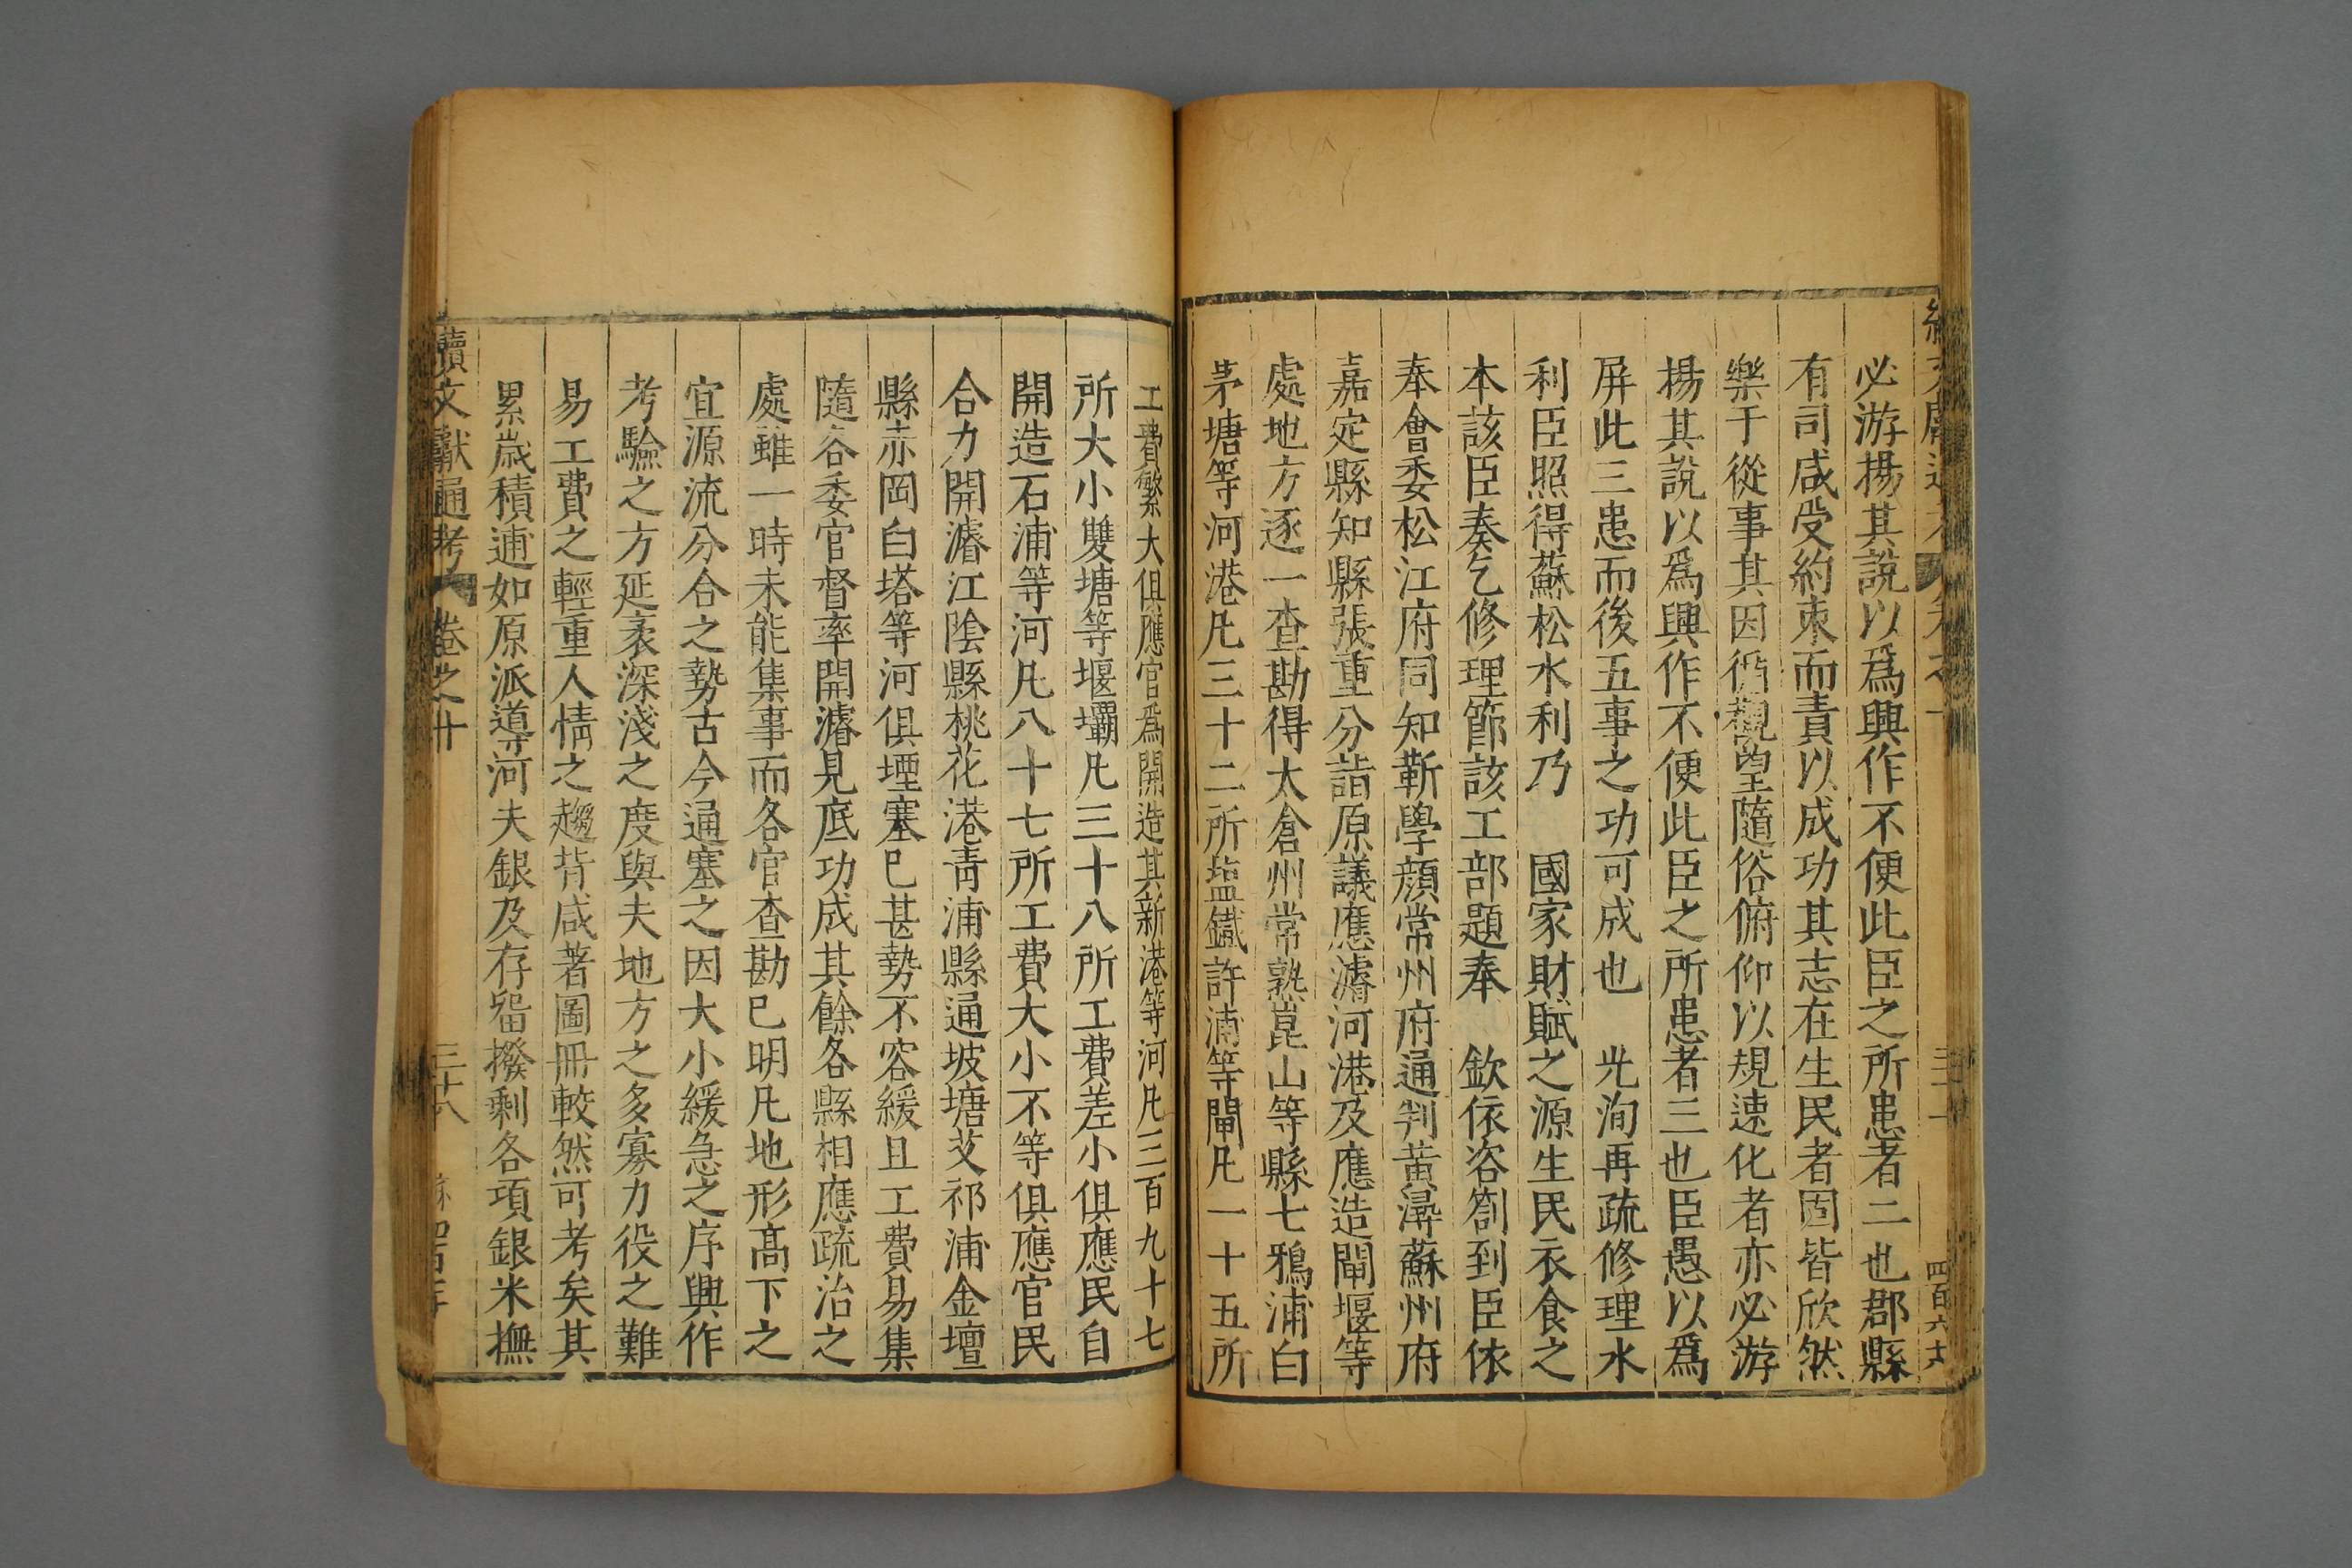 必游揚其說以爲興作不便此臣之所患者二也郡縣
有司咸受約束而責以成功其志在生民者固皆欣然
樂于從事其因循觀望隨俗俯仰以規速化者亦必游
揚其說以爲興作不便此臣之所患者三也臣愚以爲
屏此三患而後五事之功可成也 光洵再疏修理水
利臣照得蘇松水利乃 國家財賦之源生民衣食之
本該臣奏乞修理節該工部題奉 欽依咨劄到臣依
奉會委松江府同知靳學顏常州府通判黃潯蘇州府
嘉定縣知縣張重分詣原議應濬河港及應造閘堰等
處地方逐一查勘得太倉州常熟崑山等縣七鴉浦白
茅塘等河港凡三十二所塩鐵許浦等閘凡一十五所
工費繁大俱應官爲開造其新港等河凡三百九十七
所大小雙塘等堰壩凡三十八所工費差小俱應民自
開造石浦等河凡八十七所工費大小不等俱應官民
合力開濬江陰縣桃花港青浦縣通坡塘艾祁浦金壇
縣赤岡白塔等河俱堙塞巳甚勢不容緩且工費易集
隨各委官督率開濬見底功成其餘各縣相應疏治之
處雖一時未能集事而各官查勘巳明凡地形高下之
宜源流分合之勢古今通塞之因大小緩急之序興作
考驗之方延袤深淺之度與夫地方之多寡力役之難
易工費之輕重人情之趨背咸著圖冊較然可考矣其
累歲積逋如原派導河夫銀及存留撥剩各項銀米撫
續文獻通考 卷之廿
三十八